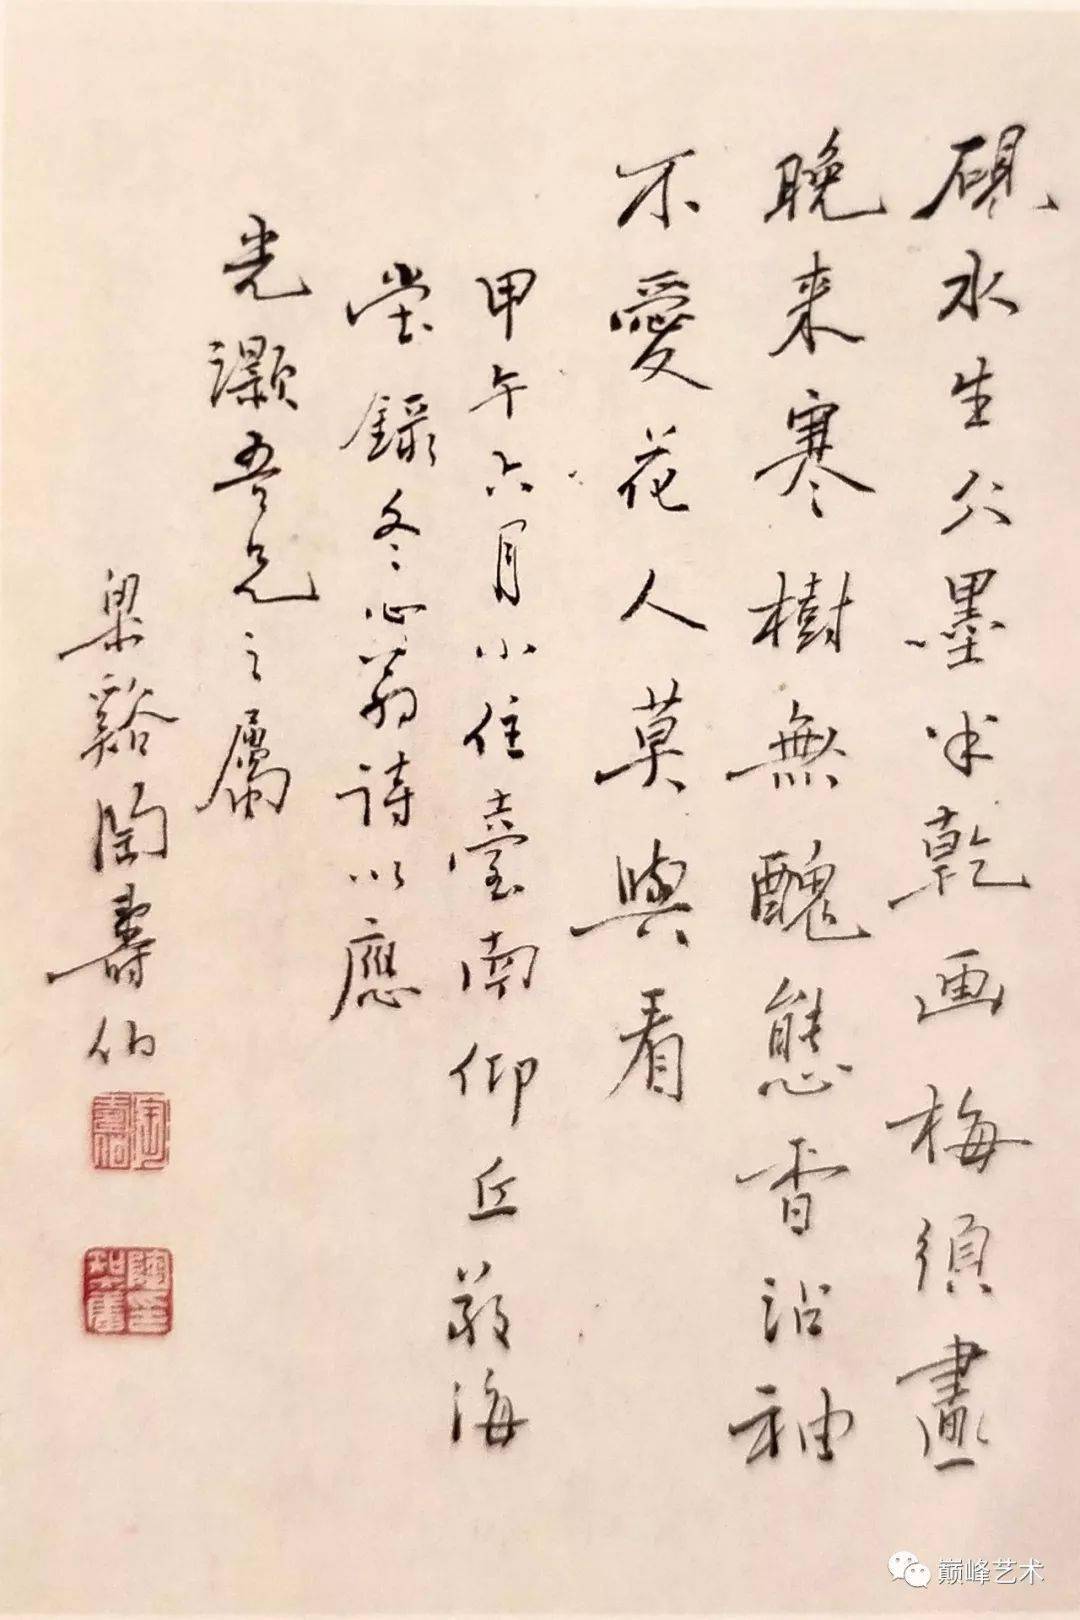 硯水生仌墨半乾画梅須畫
晚来寒樹無醜態香沾袖
不愛花人莫與看
甲午六月小住臺南仰丘海
堂錄冬心翁詩以應
光灝吾兄之屬
梁谿陶壽伯
陶壽伯
巅峰艺术